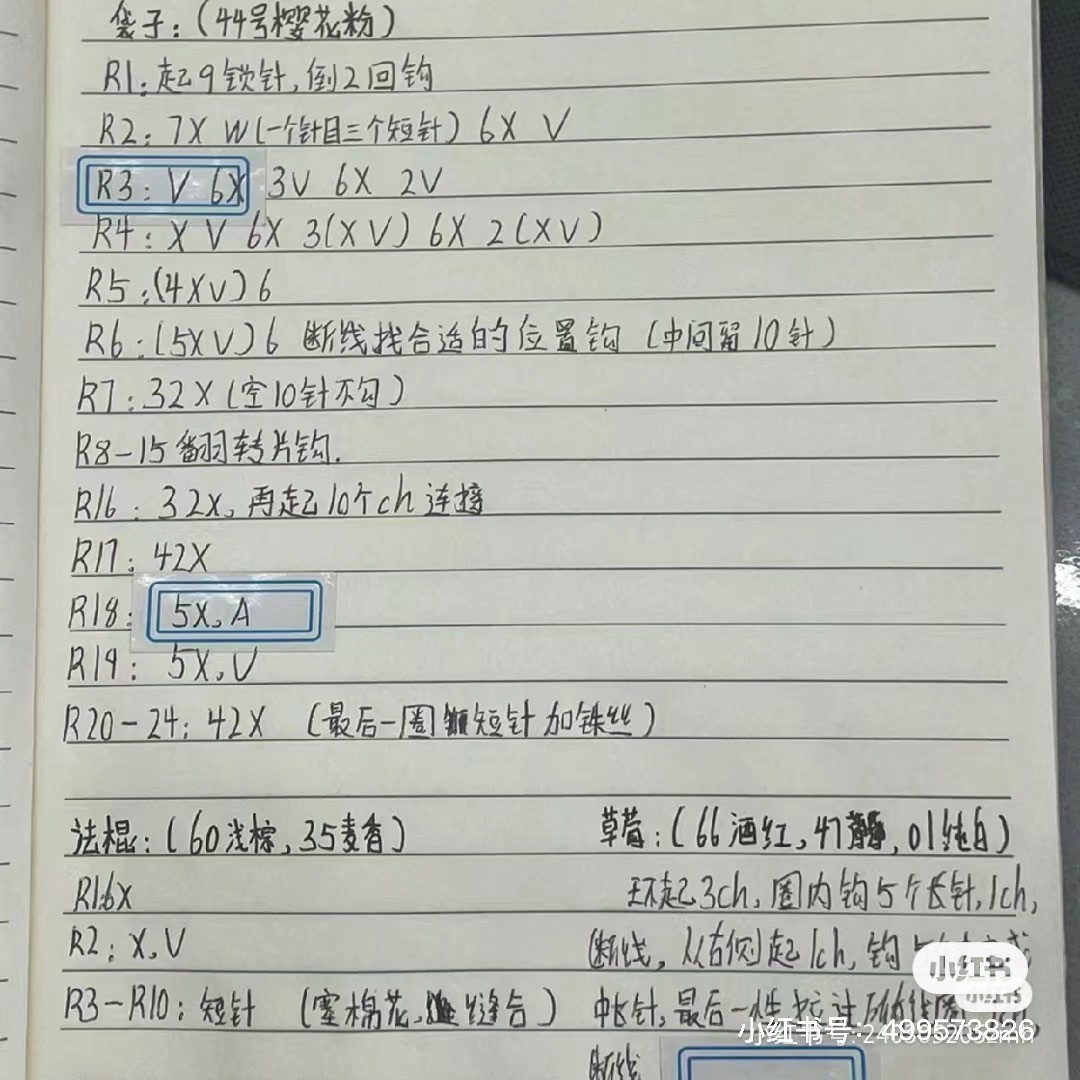 袋子：(44号樱花粉)
R1：起9锁针，倒2回钩
R2：7X W(一个针目三个短针) 6X V
R3：V 6X 3V 6X 2V
R4：X V 6X 3(X V) 6X 2(X V)
R5：(4XV)6
R6：(5XV)6 断线找合适的位置钩 (中间留10针)
R7：32X (空10针不勾)
R8-15翻转片钩.
R16：32X，再起10个ch连接
R17：42X
R18：5X，A
R19：5X，V
R20-24：42X (最后一圈短针加铁丝)
法棍：(60浅棕，35麦香)
R1：6X
R2：X，V
R3-R10：短针 (塞棉花，缝合)
草莓：(66酒红，47，01纯白)
环起3ch，圈内钩5个长针，1ch，
断线，从右侧起1ch，钩
中长针，最后一
断线
小红书
小红书
小红书号：499573826